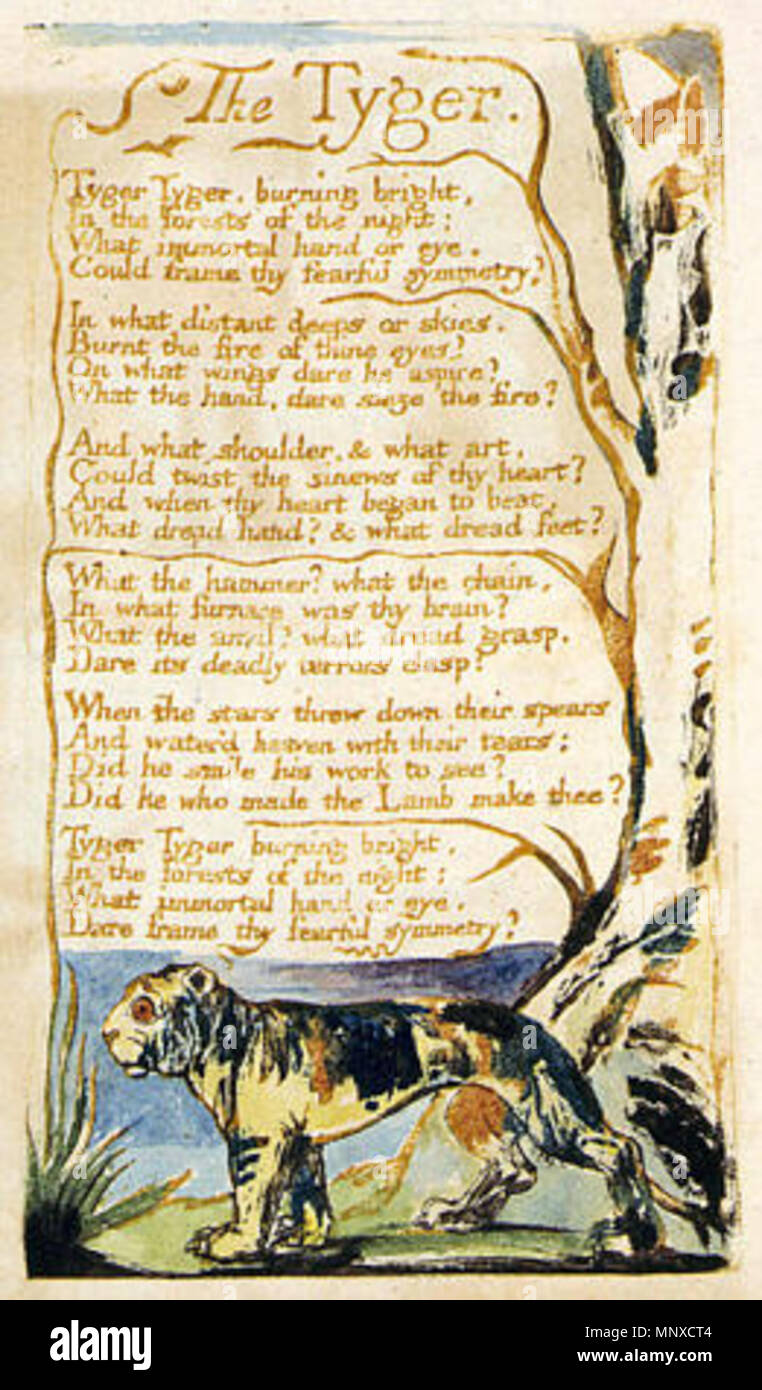 The Tyger.
Tyger Tyger, burning bright,
In the forests of the night:
What immortal hand or eye,
Could frame thy fearful symmetry?
In what distant deeps or skies,
Burnt the fire of thine eyes?
On what wings dare he aspire?
What the hand, dare sieze the fire?
And what shoulder, & what art,
Could twist the sinews of thy heart?
And when thy heart began to beat,
What dread hand? & what dread feet?
What the hammer? what the chain,
In what furnace was thy brain?
What the anvil? what dread grasp,
Dare its deadly terrors clasp?
When the stars threw down their spears
And water'd heaven with their tears:
Did he smile his work to see?
Did he who made the Lamb make thee?
Tyger Tyger burning bright,
In the forests of the night:
What immortal hand or eye,
Dare frame thy fearful symmetry?
alamy
Image ID: MNXCT4
www.alamy.com